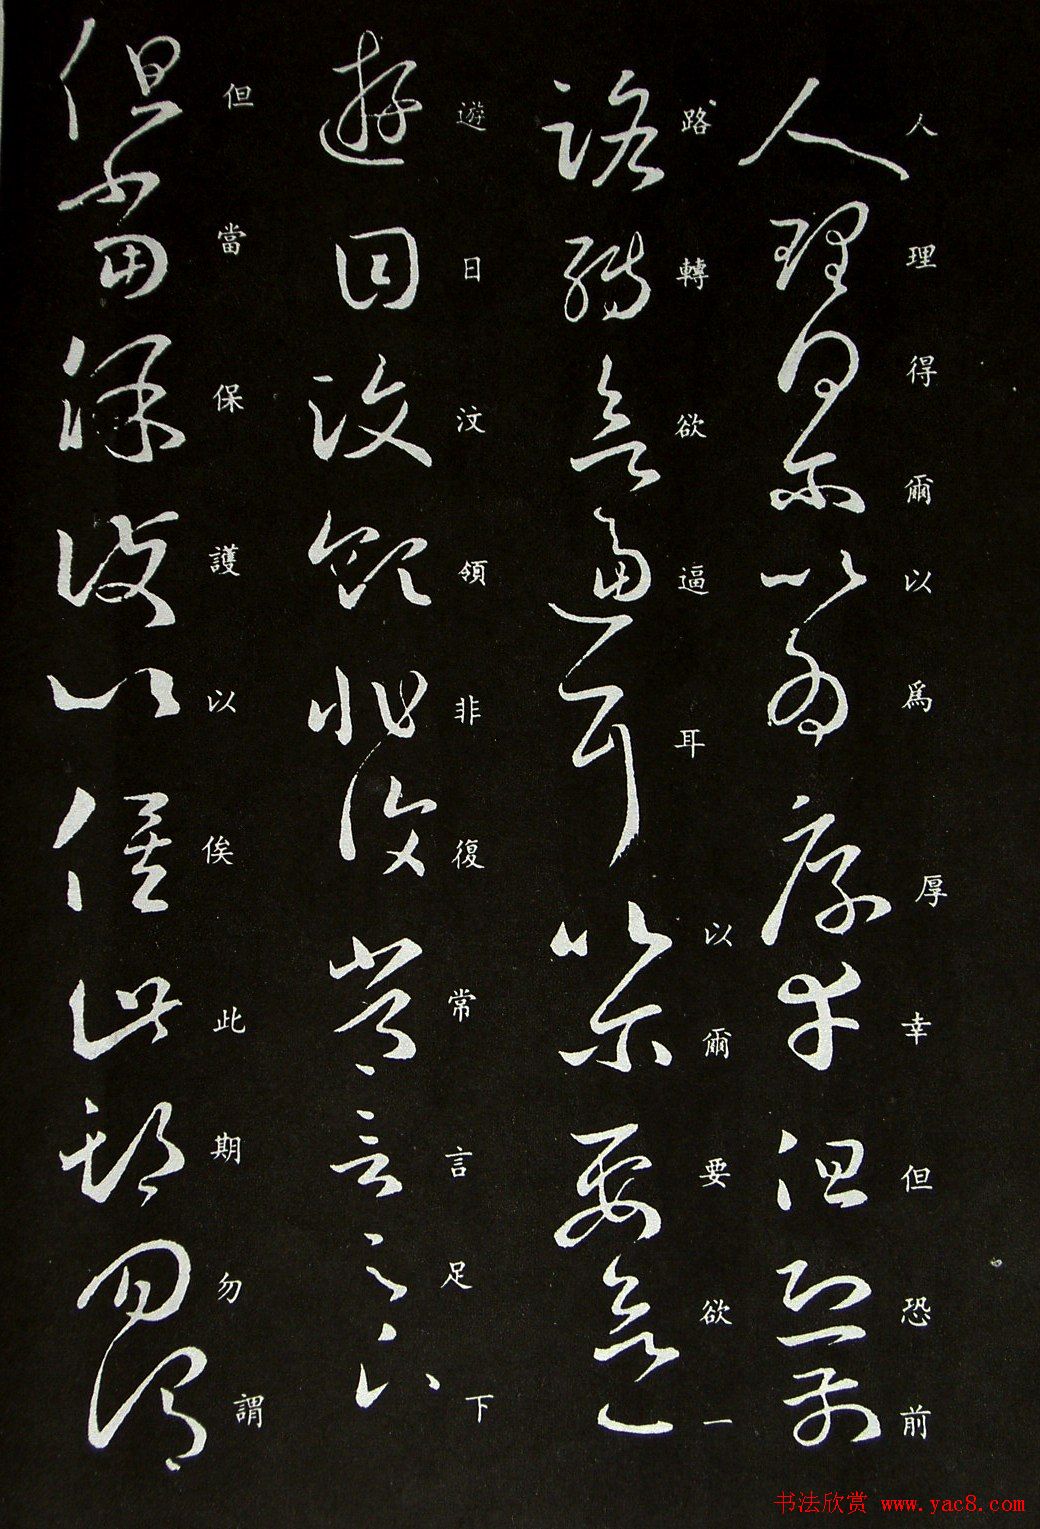 人理得爾以為厚幸但恐前
路轉欲逼耳以爾要欲一
遊日汶領非復常言足下
但當保護以俟此期勿謂
书法欣赏 www.yac8.com